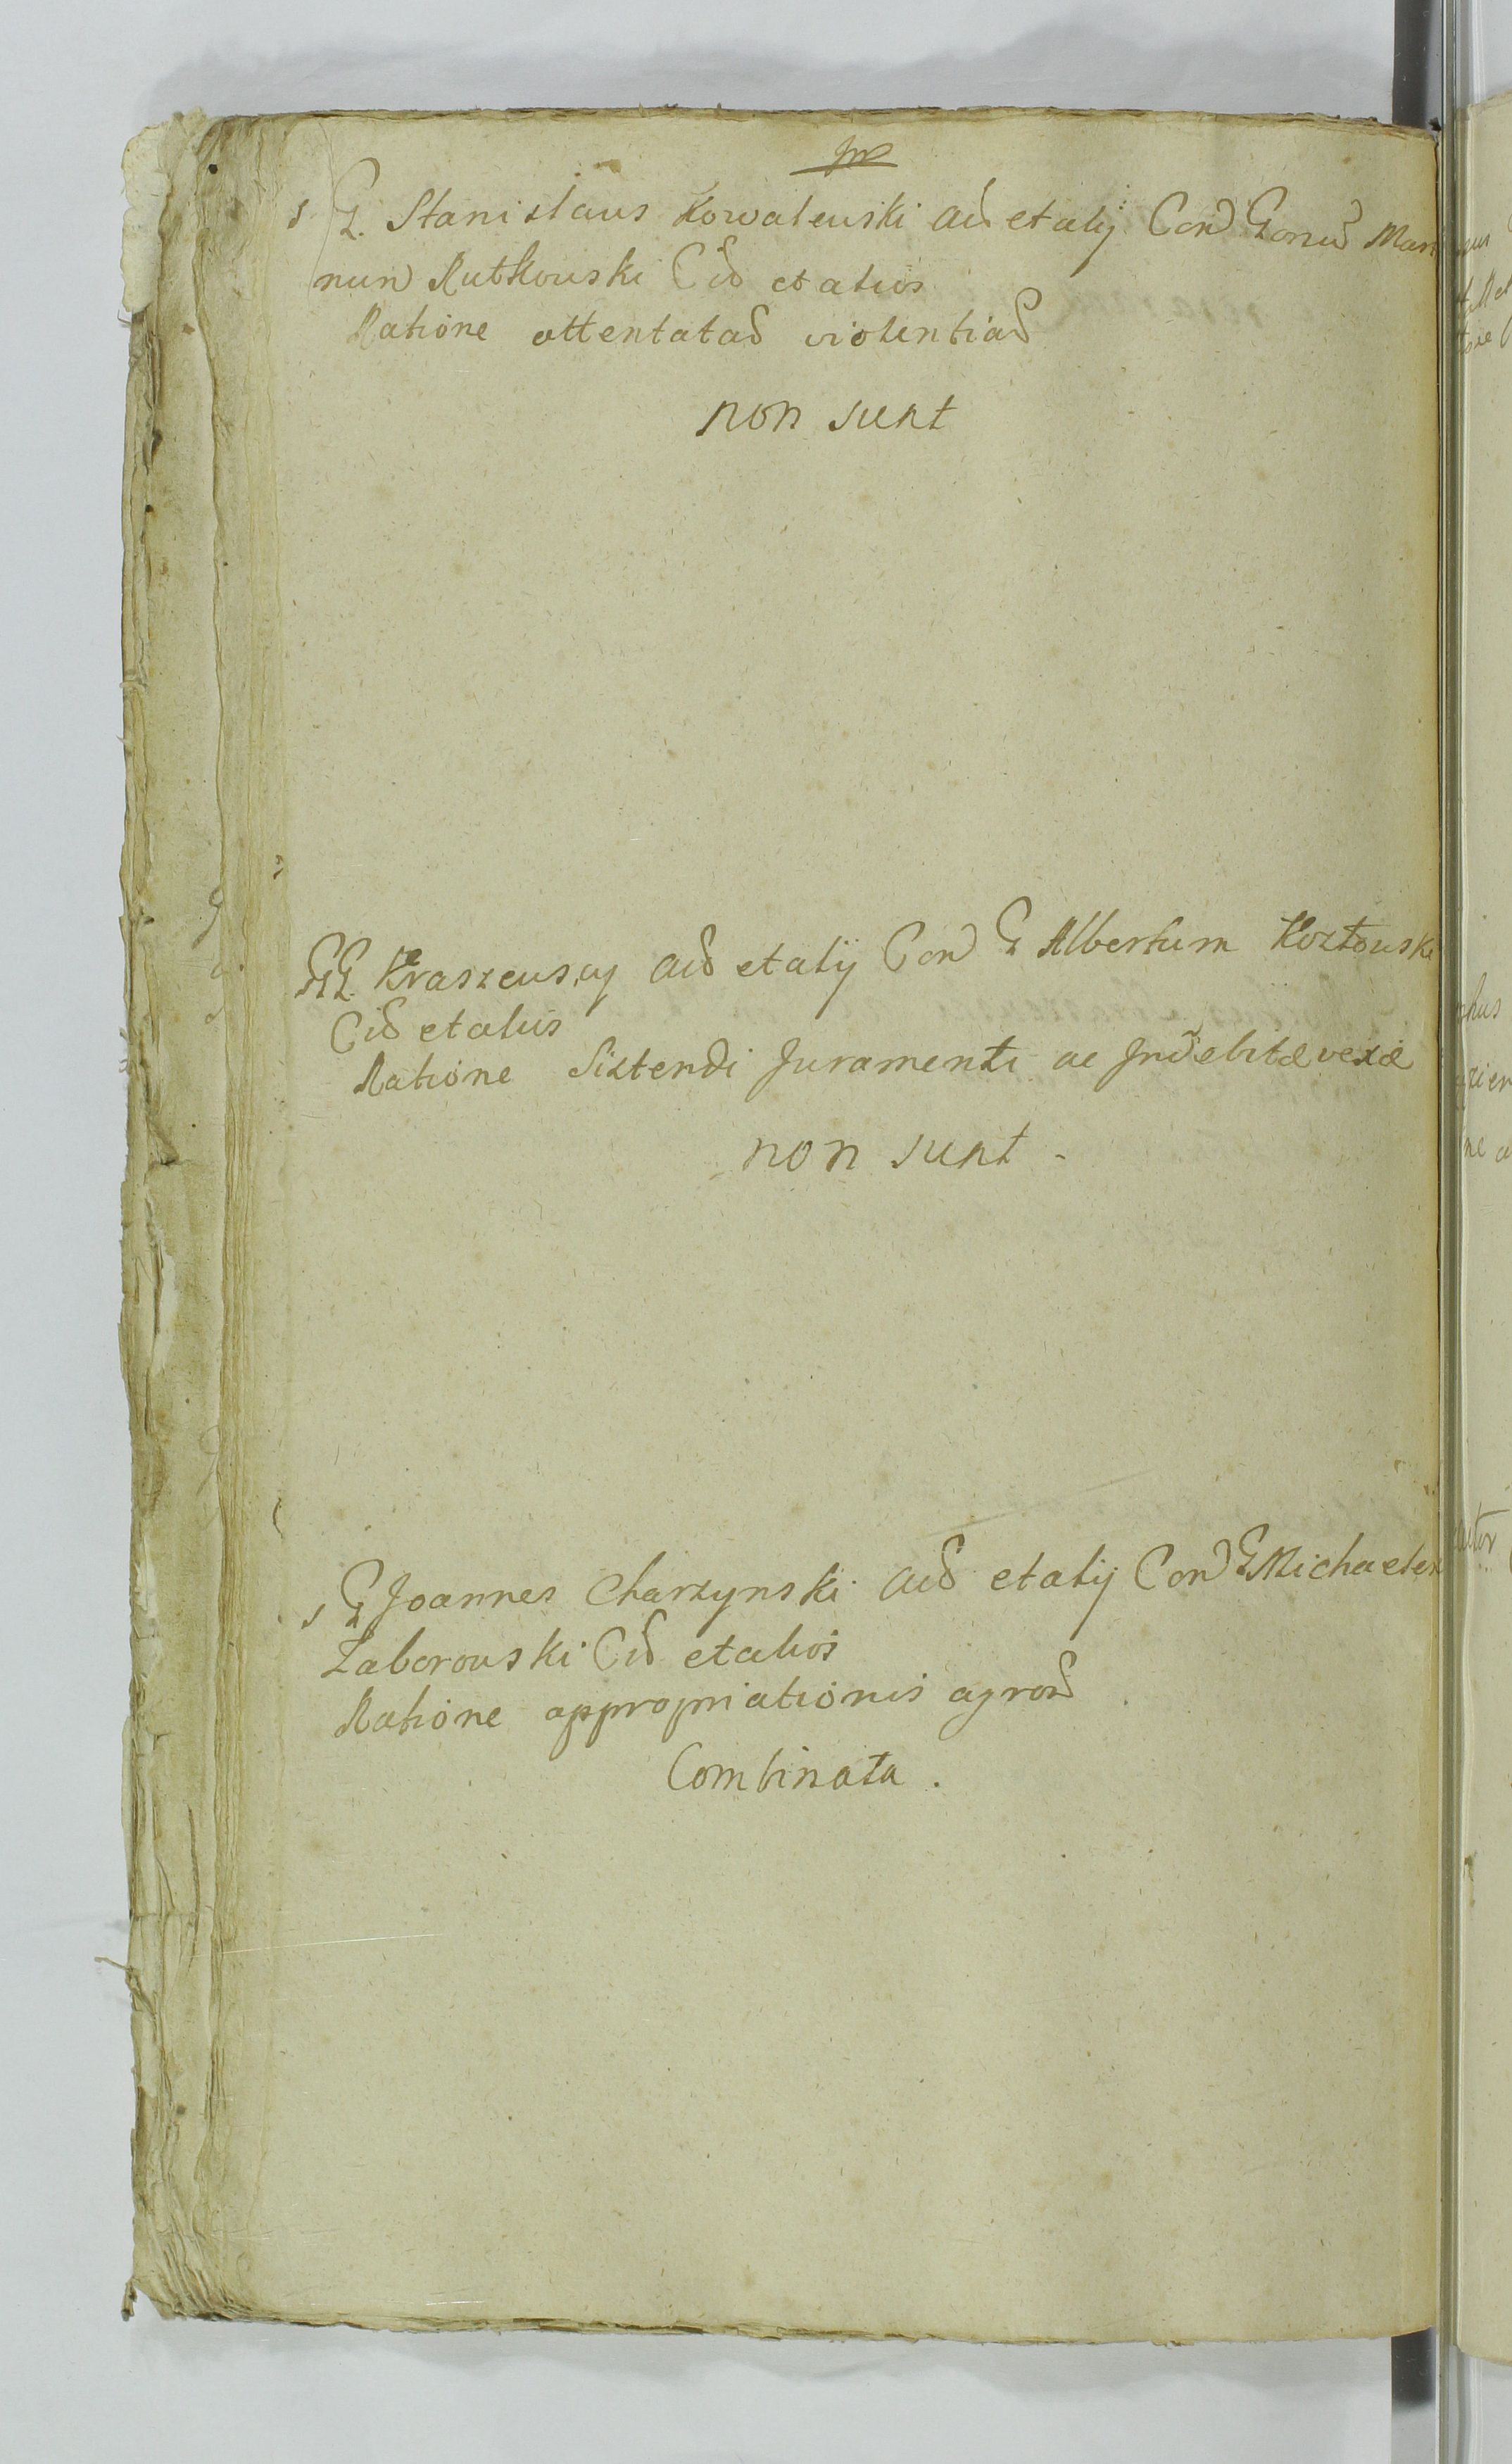 G. Stanislaus Kowalewski Acđ et alij Con Gonus Mar
num Rutkowski Citđ et alios
Ratione attentatađ violentiađ
non sunt
GG. Kraszewscy Acđ et alij Con G Albertum Kozłowski
Citđ et alios
Ratione Sistendi Juramenti ac Indebitæ vexæ
non sunt -
G Joannes Charzynski Acđ et alij Con G Michaelem
Zaborowski Citđ et alios
Ratione appropriationis agrorđ
Combinata.